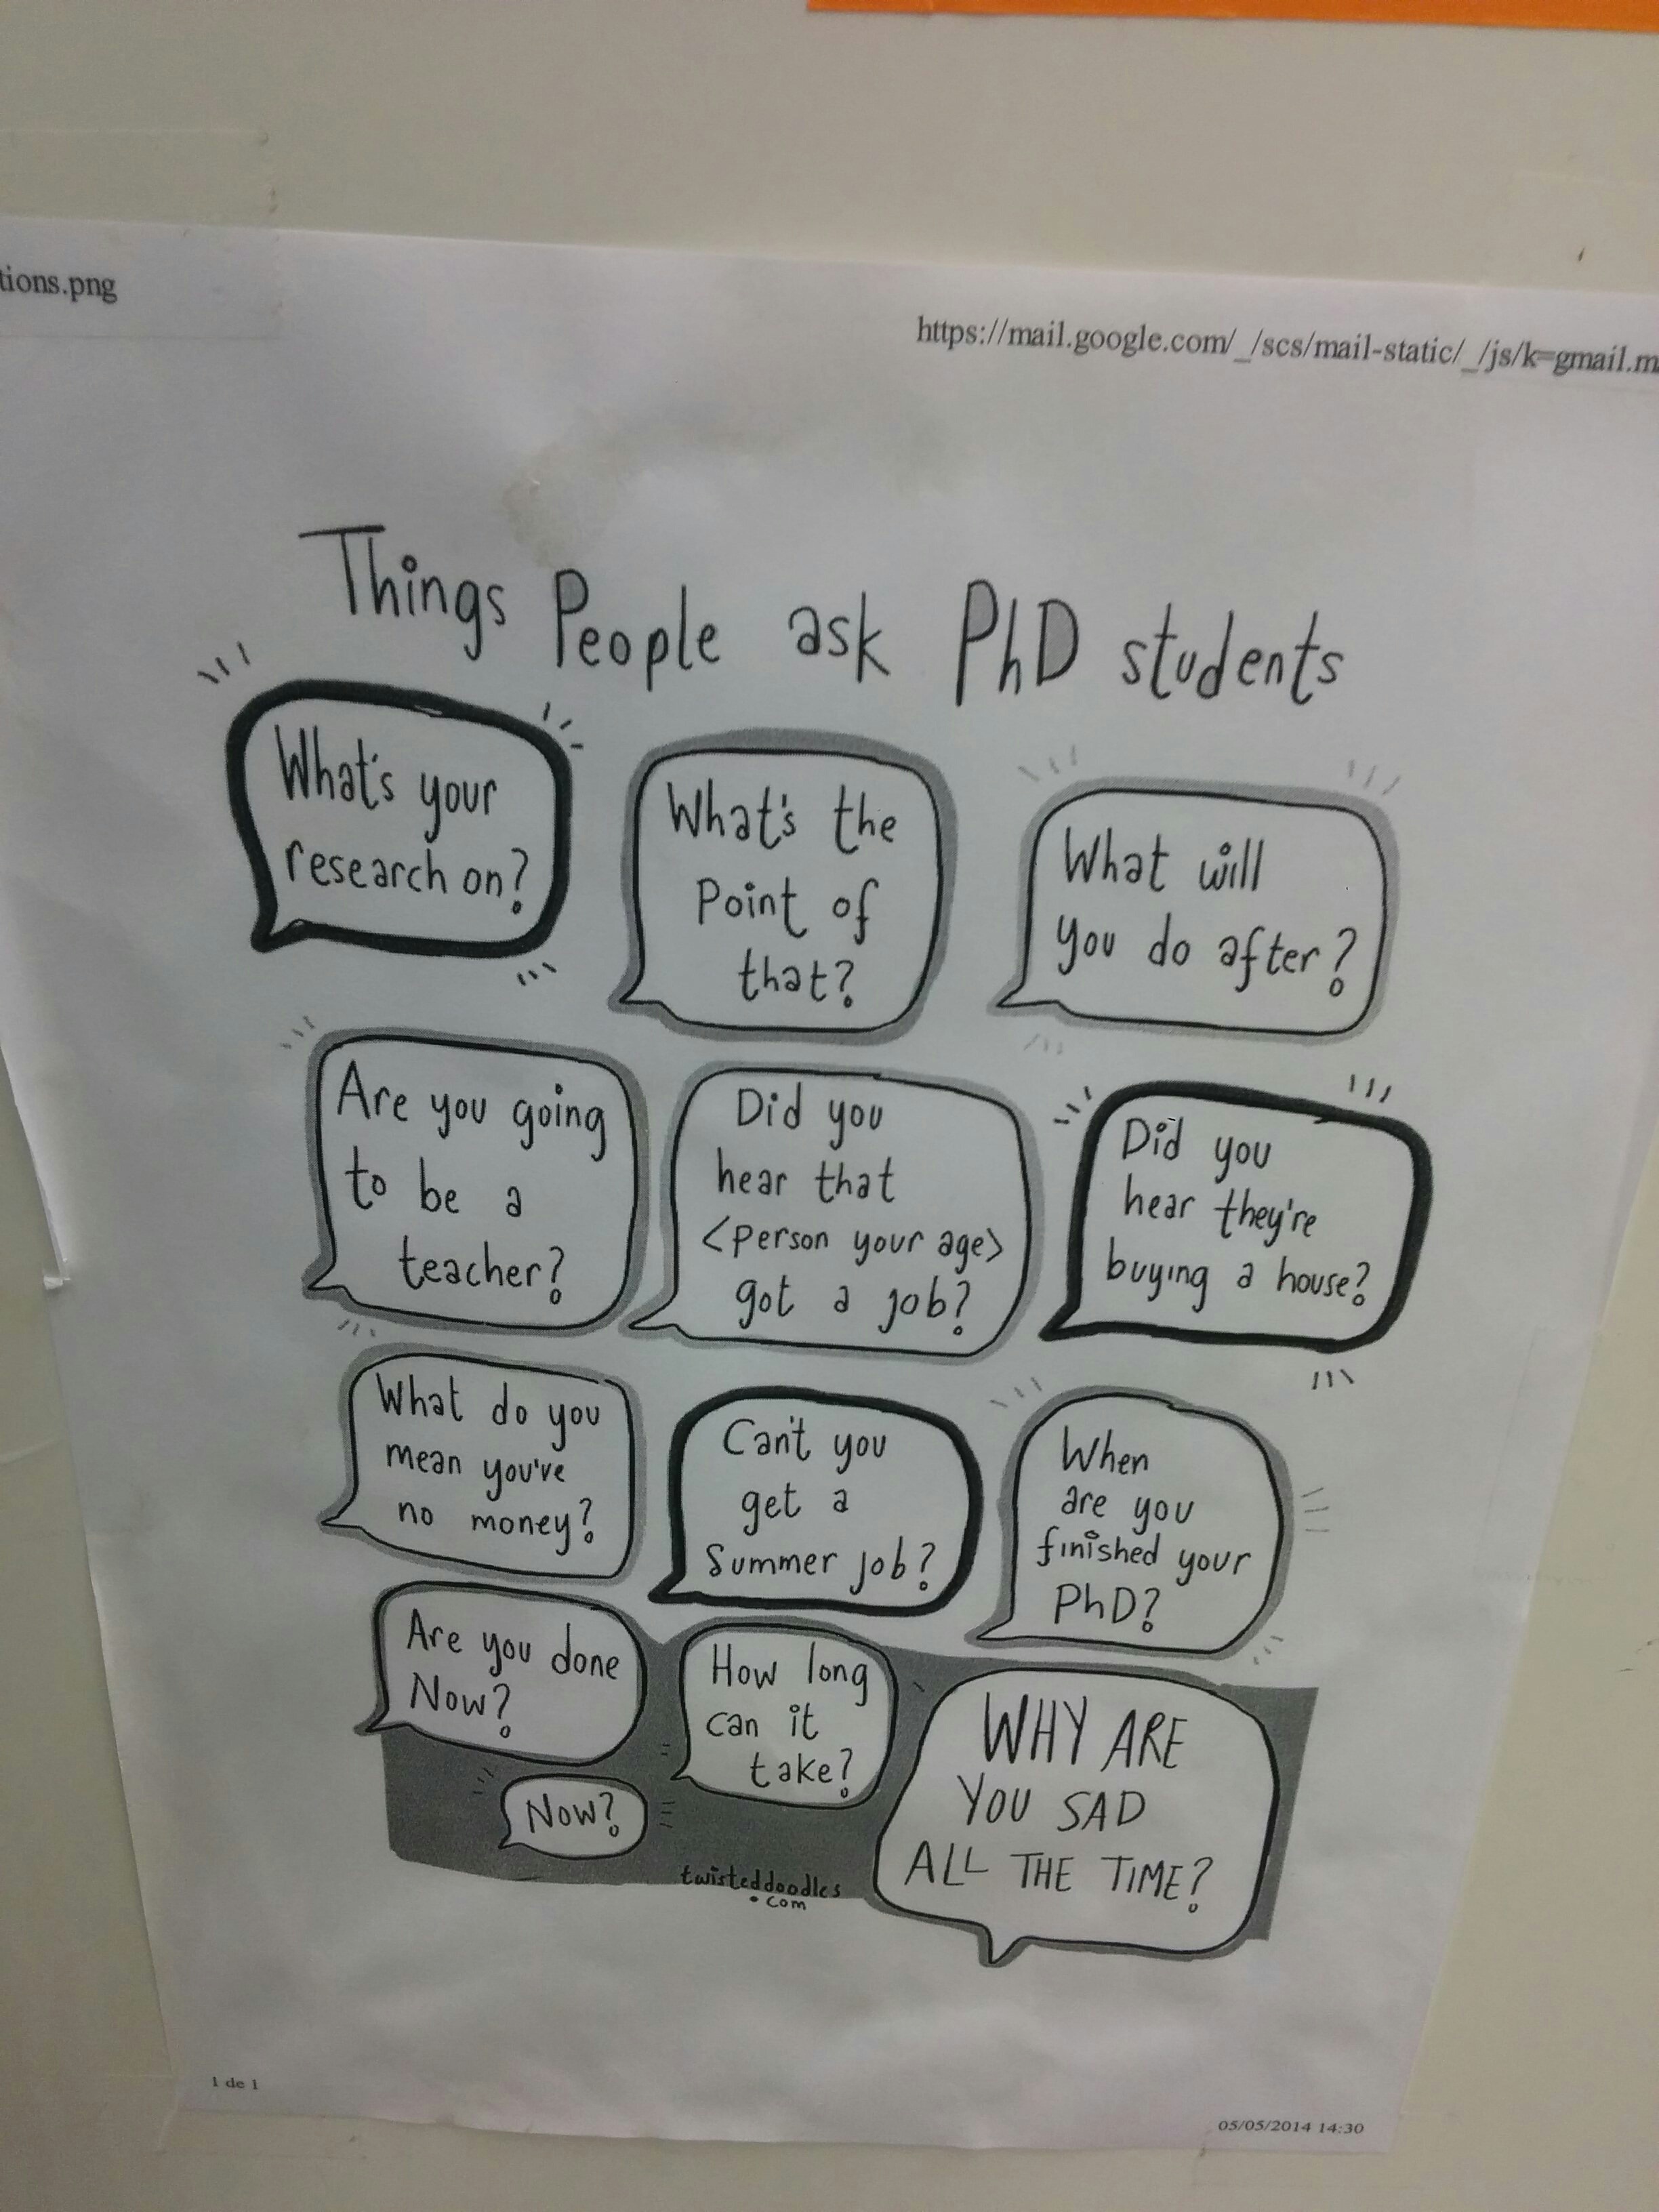 tions.png
https://mail.google.com/_/scs/mail-static/_/js/k=gmail.m
Things People ask PhD students
What's your
research on?
What's the
Point of
that?
What will
you do after?
Are you going
to be a
teacher?
Did you
hear that
<person your age>
got a job?
Did you
hear they're
buying a house?
What do you
mean you've
no money?
Can't you
get a
Summer job?
When
are you
finished your
PhD?
Are you done
Now?
Now?
How long
can it
take?
WHY ARE
YOU SAD
ALL THE TIME?
twisteddoodles
.com
1 de 1
05/05/2014 14:30